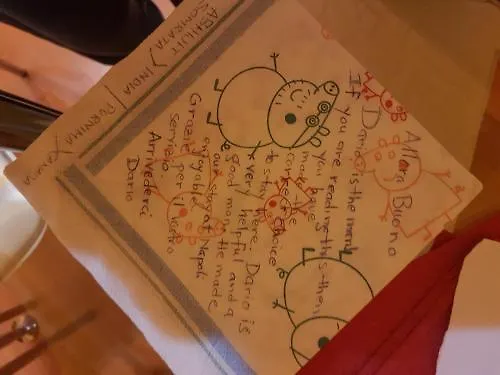 Allora Buono
Dario is the man!
If you are reading this then
you have
made the
correct choice
to stay here. Dario is
very helpful and a
good man. He made
our stay at Napoli
enjoyable.
Grazie per il
servizio.
Arrivederci
Dario
ABHIJIT
SOMRATA INDIA | PORNIMA